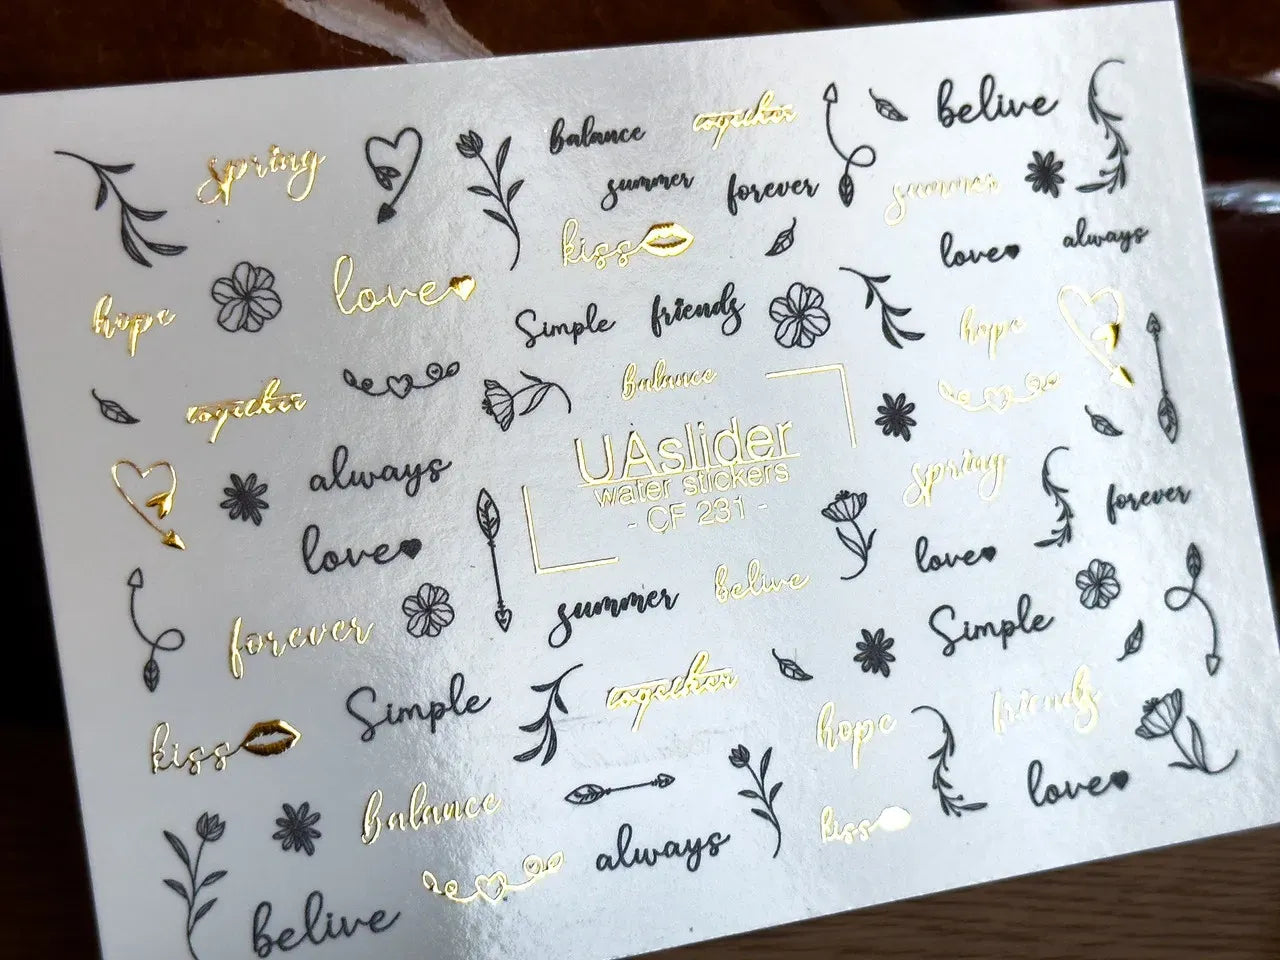 balance
together
belive
spring
summer
forever
summer
kiss
love
always
love
hope
Simple
friends
hope
together
balance
always
UAslider
water stickers
- CF 231 -
spring
forever
love
love
summer
belive
forever
Simple
Simple
together
kiss
hope
friends
balance
always
kiss
love
belive